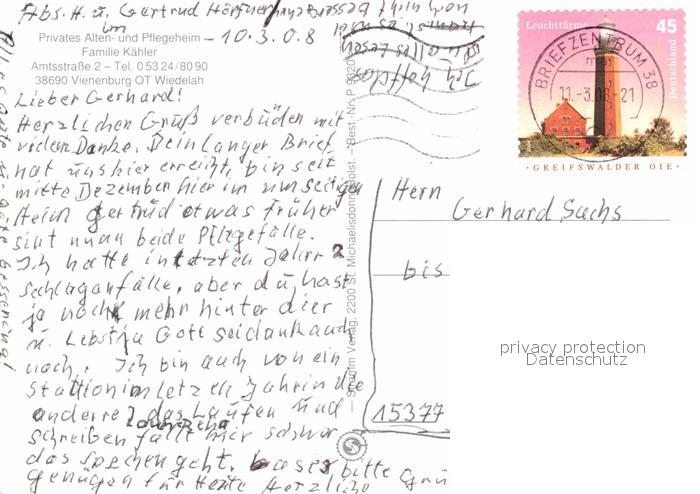 Abs. H. u. Gertrud
im
Privates Alten- und Pflegeheim
Familie Kähler
Amtsstraße 2 – Tel. 0 53 24 / 80 90
38690 Vienenburg OT Wiedelah
- 10.3.08
Lieber Gerhard!
Herzlichen Gruß verbüden mit
vielem Danke. Dein langer Brief
hat uns hier erreicht, bin seit
mitte Dezember hier im
Heim Gertrud etwas früher
sint nun beide Pflegefälle.
Ich hatte in letzten Jahr 2
schlaganfälle, aber du hast
ja noch mehr hinter dier
u. Lebst ja Gott seidank auch
noch. Ich bin auch von ein
Stattion im letzen Jahr in die
andere das Laufen und
schreiben fällt mir schwer
das spechen geht. bitte
genügen für Heute Herzliche Grü
Alles Gute Besserung!
Ich hoffe das
Du alles lesen
Stramm Verlag, 2200 St. Michaelisdonn/Holst. · Best.-Nr. P
Leuchttürme
45
Deutschland
GREIFSWALDER OIE
BRIEFZENTRUM 38
11.-3.08-21
Hern
Gerhard Sachs
bis
15377
privacy protection
Datenschutz